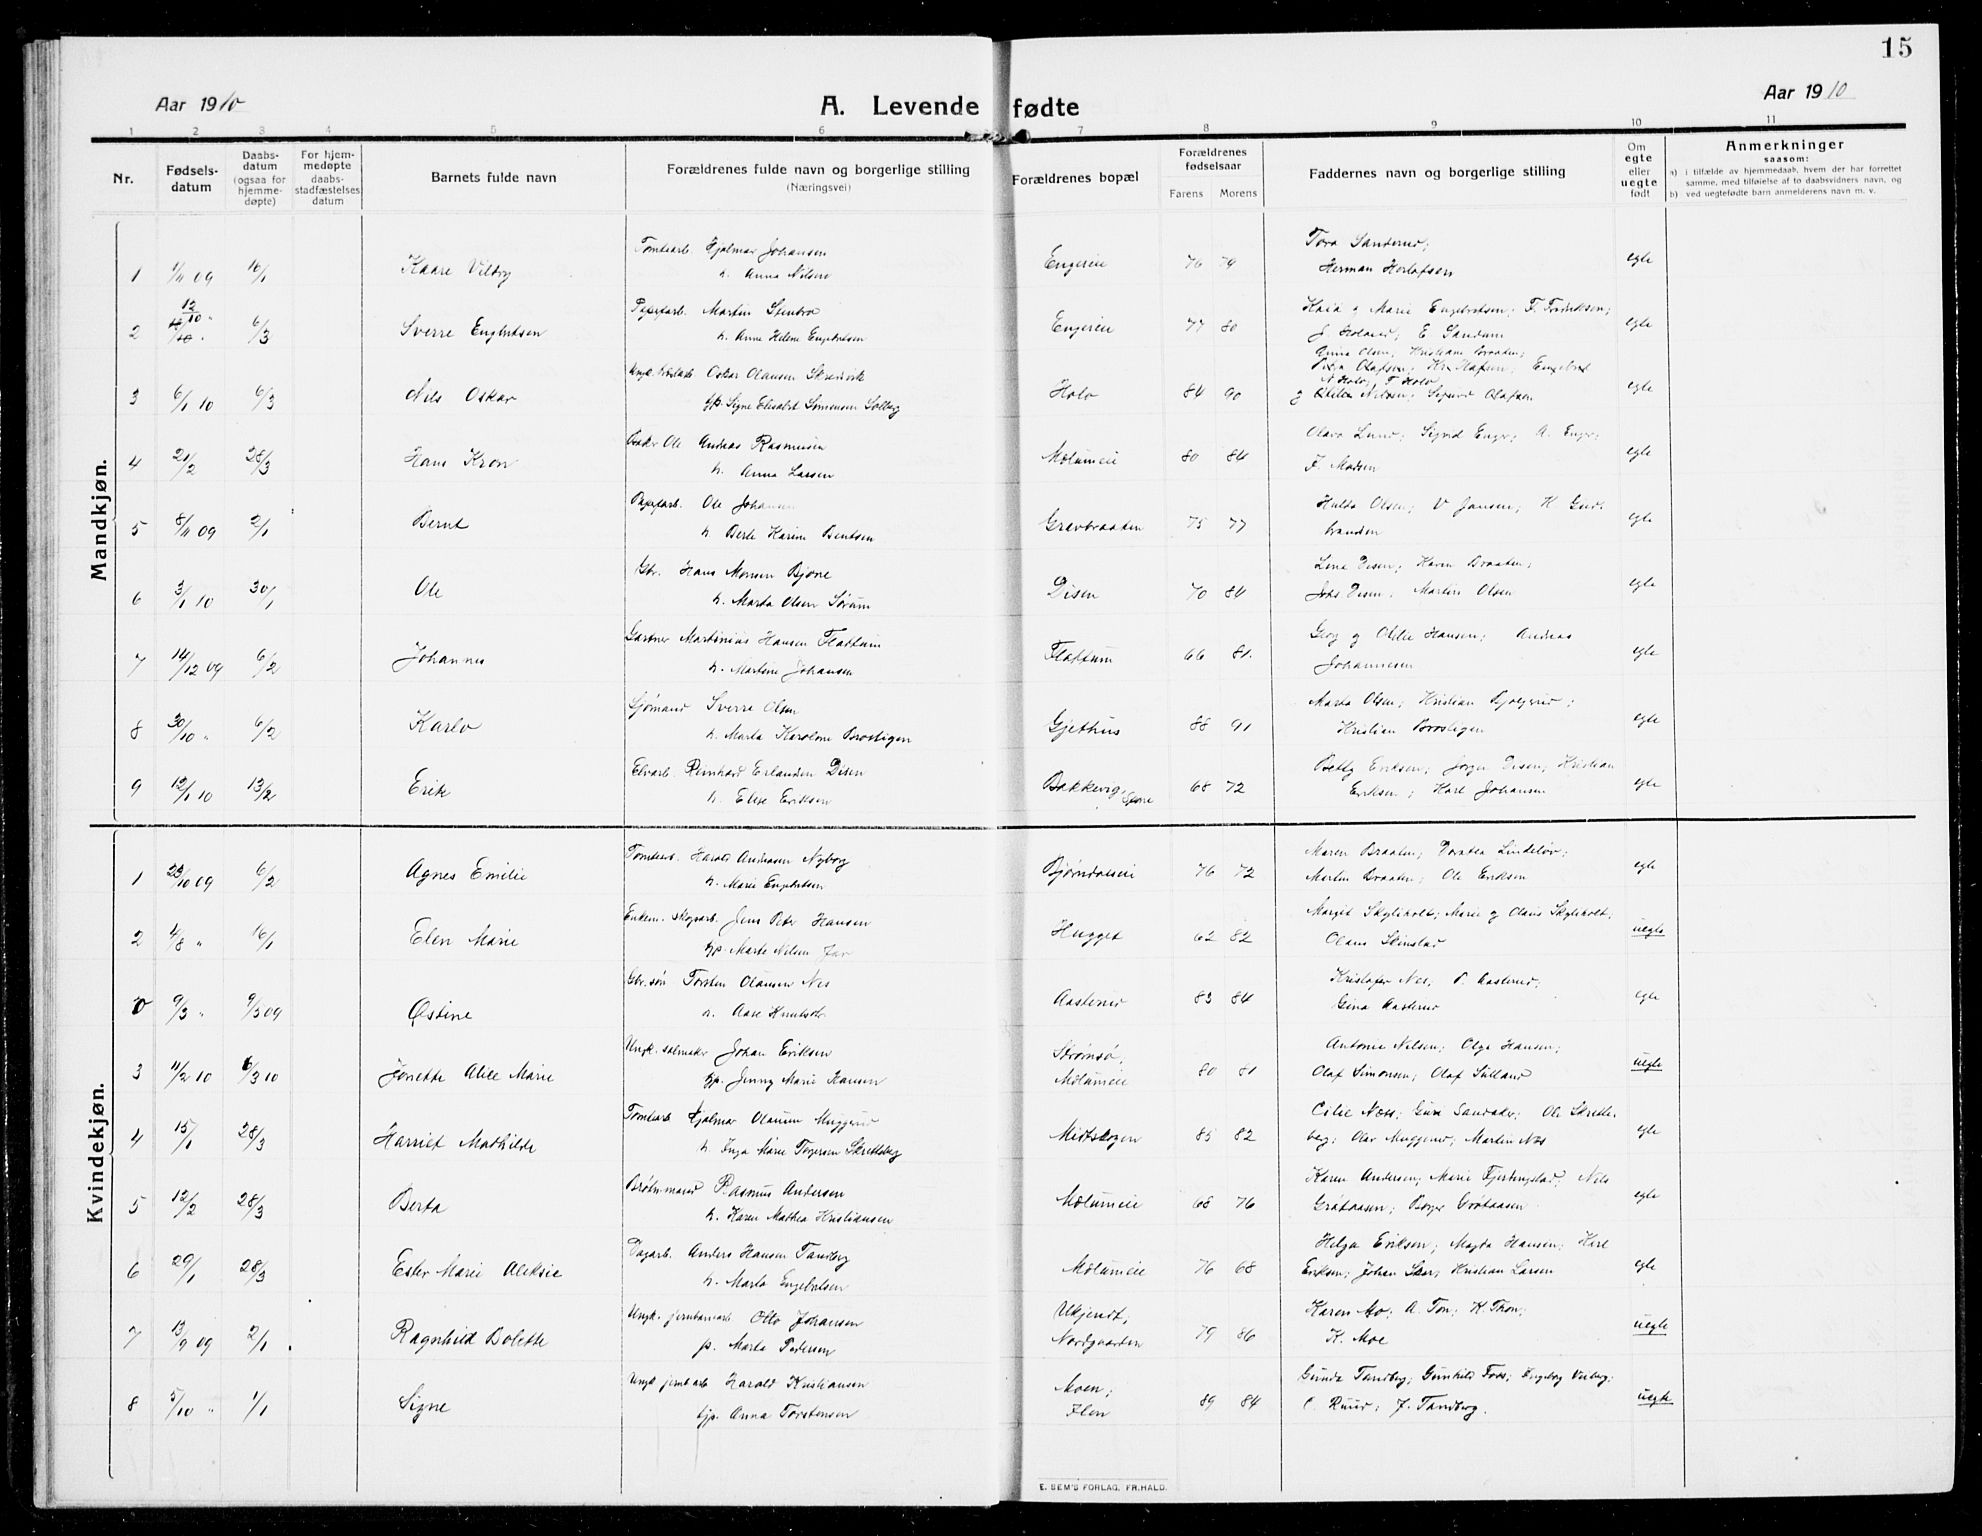 15
Aar 1910
A. Levende fødte
Aar 1910
1 2 3 4 5 6 7 8 9 10 11
Nr.
Fødsels-
datum
Daabs-
datum
(ogsaa for
hjemme-
døpte)
For hjem-
medøpte
daabs-
stadfæstelses
datum
Barnets fulde navn
Forældrenes fulde navn og borgerlige stilling
(Næringsvei)
Forældrenes bopæl
Forældrenes
fødselsaar
Farens Morens
Faddernes navn og borgerlige stilling
Om
egte
eller
uegte
født
Anmerkninger
saasom:
a) i tilfælde av hjemmedaab, hvem der har forrettet
samme, med tilføielse af to daabsvidners navn, og
b) ved uegtefødte barn anmelderens navn m. v.
Mandkjøn.
Tomtearb. Hjalmar Johansen
Tora Sanderud;
1 1/11 09 16/1 Kaare Vilbry h. Anna Nilsen Engereie 76 79 Herman Horlofsen egte
12/10 "
Papirarb. Martin Stenbro
Kaia g Marie Engebretsen; F. Fredriksen;
2 6/3 Sverre Engbretsen h. Anne Helene Engebretsen Engereie 77 80 J. Holand; E Sandum egte
Anna Olsen; Kristiane Braaten;
Oskar Olausen Skredsvik
Olafsen; Kr. Olafsen; Engebret
3 6/1 10 6/3 Nils Oskar Gp. Signe Elisabet Simensen Solberg Holo 84 90 g Nilsen; Sigurd Olafsen egte
Baker Ole Andreas Rasmussen
Olava Lund; Sigrid Enger; A. Enger;
4 21/2 28/3 Hans Kron h. Anna Larsen Mælumeie 80 84 F. Madsen egte
Papirarb. Ole Johansen
Hulda Olsen; V Jansen; K. Gud-
5 8/11 09 2/1 Bernt h Berte Karine Bentsen Grevbraaten 75 77 brandsen egte
Gbr. Hans Monsen Bjøne
Lina Disen; Karen Braaten;
6 3/1 10 30/1 Ole h. Marta Olsen Sørum Disen 70 84 Johs Disen; Martin Olsen egte
Gartner Martinius Hansen Flattum
Georg g Olilie Hansen; Andreas
7 14/12 09 6/2 Johannes h. Martine Johansen Flattum 66 81. Johannesen egte
Sjømand Sverre Olsen
Marta Olsen; Kristian Bjølgerud;
8 30/10 " 6/2 Karlo h. Marta Karoline Brostigen Gjethus 88 91 Kristian Brostigen egte
Elvarb. Reinhard Erlandsen Disen
Betty Eriksen; Jørgen Disen; Kristian
9 12/1 10 13/2 Erik h. Elise Eriksen Bakkevig, Spone 68 72 Eriksen; Karl Johansen egte
Kvindekjøn.
Tomtearb. Harald Andreasen Nyborg
Maren Braaten; Dorthea Lindeløv;
1 23/10 09 6/2 Agnes Emilie h. Marie Engebretsen Bjørndalseie 76 72 Martin Braaten; Ole Eriksen egte
Enkem. skogsarb. Jens Peter Hansen
Margit Skyliholt; Marie g Olaus Skyliholt;
2 4/8 " 16/1 Elen Marie Gp. Marte Nilsen Jar Hugget 62 82 Olaus Skinstad uegte
Gbr. søn Torsten Olausen Nes
Kristofer Nes; P. Aasterud;
0 9/3 " 9/3 09 Østine h. Aase Knutsdtr Aasterud 83 84 Gina Aasterud egte
Ungk. salmaker Johan Eriksen
Strømsø,
Antonie Nilsen; Olga Hansen;
3 11/2 10 6/3 10 Jonette Alice Marie Gp. Jenny Marie Hansen Mælumeie 80 81 Olaf Simonsen; Olaf Sulland uegte
Tomtearb Hjalmar Olausen Muggerud
Cilie Næss; Guri Sandaker; Ole Skrette-
4 15/1 28/3 Harriet Mathilde h. Inga Marie Torgersen Skretteberg Midtskogen 85 82 berg; Olav Muggerud; Martin Næs egte
Brøtn.mand Rasmus Andersen
Karen Andersen; Marie Fjerdingstad; Nils
5 12/2 28/3 Berta h. Karen Mathea Kristiansen Mælumeie 68 76 Grøtaasen; Borger Grøtaasen egte
Dagarb. Anders Hansen Tandberg
Helga Eriksen; Magda Hansen; Karl
6 29/1 28/3 Ester Marie Aleksie h. Marta Engebretsen Mælumeie 76 68 Eriksen; Johan Skar; Kristian Larsen egte
Ungk. jernbanearb Otto Johansen
Ukjendt,
Karen Mo; A. Ton; K. Thon;
7 13/9 09 2/1 Ragnhild Bolette p. Marta Pedersen Nordgaarden 79 86 K. Moe uegte
Ungk jernb.arb Harald Kristiansen
Moen;
Gunda Tandberg; Gunhild Foss; Ingeborg Viberg;
8 5/10 " 1/1 Signe tjp. Anna Torstensen Flen 89 84 C. Ruud; J. Tandberg. uegte
E. SEM'S FORLAG, FR.HALD.